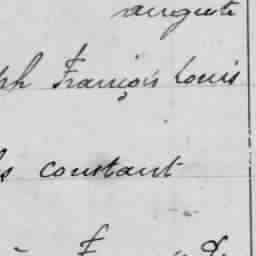 auguste
ph François Louis
s constant